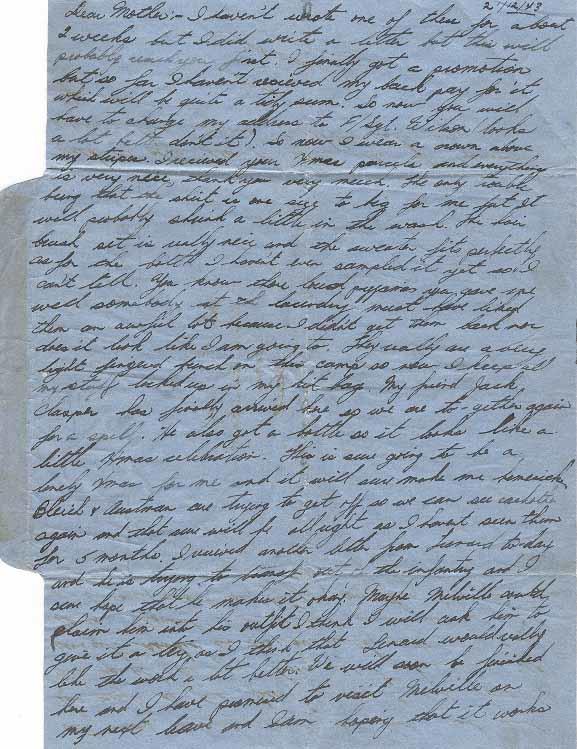 2 /12/43
Dear Mother:- I haven't wrote one of these for about
2 weeks but I did write a letter but this will
probably reach you first. I finally got a promotion
but so far I haven't recieved my back pay for it
which will be quite a tidy sum. So now you will
have to change my address to F/Sgt. Wilson (looks
a lot better don't it). So now I wear a crown above
my stripes. I recieved your Xmas parcels and everything
is very nice, thank you very much. The only trouble
being that the shirt is one size to big for me but it
will probably shrink a little in the wash. The hair
brush set is really nice and the sweater fits perfectly
as for the bottle I haven't even sampled it yet so I
can't tell. You know those loud pyjamas you gave me
well somebody at the laundry must have liked
them an awful lot because I didn't get them back nor
does it look like I am going to. They really are a very
light fingered bunch on this camp so now I keep all
my stuff locked up in my kit bag. My friend Jack
Clasper has finally arrived here so we are to-gether again
for a spell. He also got a bottle so it looks like a
little Xmas celebration. This is sure going to be a
lonely Xmas for me and it will sure make me homesick.
Bleich & Austman are trying to get off so we can see each other
again and that sure will be allright as I haven't seen them
for 5 months. I recieved another letter from Leonard to-day
and he is trying to out the infantry and I
sure hope that he makes it okay. Maybe Melville could
claim him into his outfit I think I will ask him to
give it a try as I think that Lenard would really
like the work a lot better. We will soon be finished
here and I have promised to visit Melville on
my next leave and I am hoping that it works